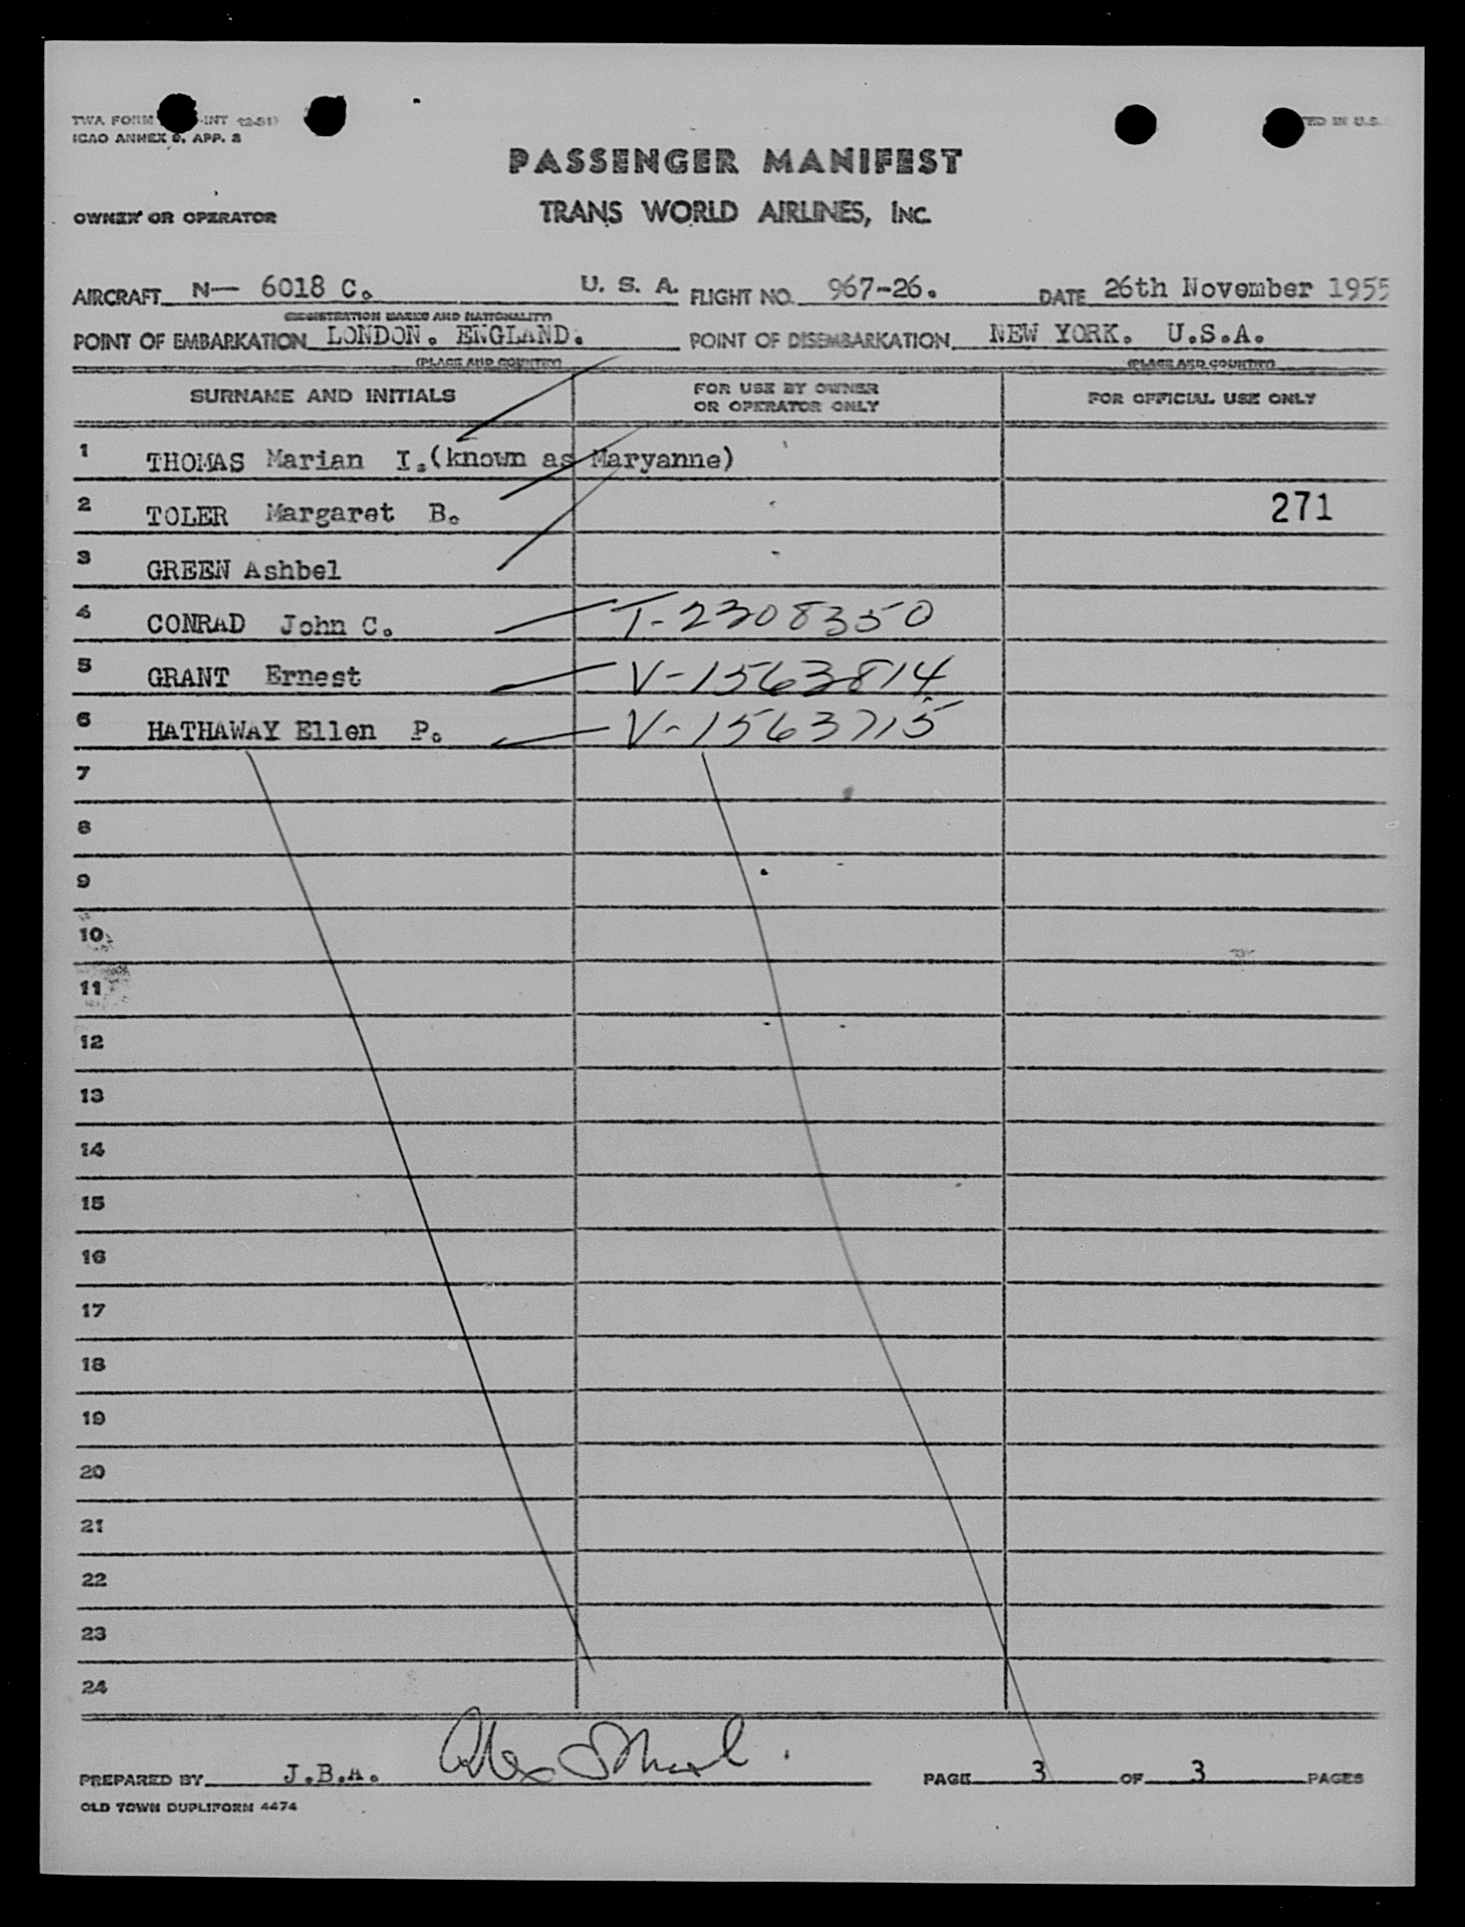 TWA FORM -INT (2-51)
ICAO ANNEX 9, APP. 3
PASSENGER MANIFEST
OWNER OR OPERATOR TRANS WORLD AIRLINES, INC.
AIRCRAFT N— 6018 C. U. S. A. FLIGHT NO. 967-26. DATE 26th November 1955
(REGISTRATION MARKS AND NATIONALITY)
POINT OF EMBARKATION LONDON. ENGLAND. POINT OF DISEMBARKATION NEW YORK. U.S.A.
(PLACE AND COUNTRY) (PLACE AND COUNTRY)
SURNAME AND INITIALS FOR USE BY OWNER OR OPERATOR ONLY FOR OFFICIAL USE ONLY
1 THOMAS Marian I.(known as Maryanne)
2 TOLER Margaret B. 271
3 GREEN Ashbel
4 CONRAD John C. T-2308350
5 GRANT Ernest V-1563814
6 HATHAWAY Ellen P. V-1563715
7
8
9
10
11
12
13
14
15
16
17
18
19
20
21
22
23
24
PREPARED BY J.B.A. PAGE 3 OF 3 PAGES
OLD TOWN DUPLIFORM 4474